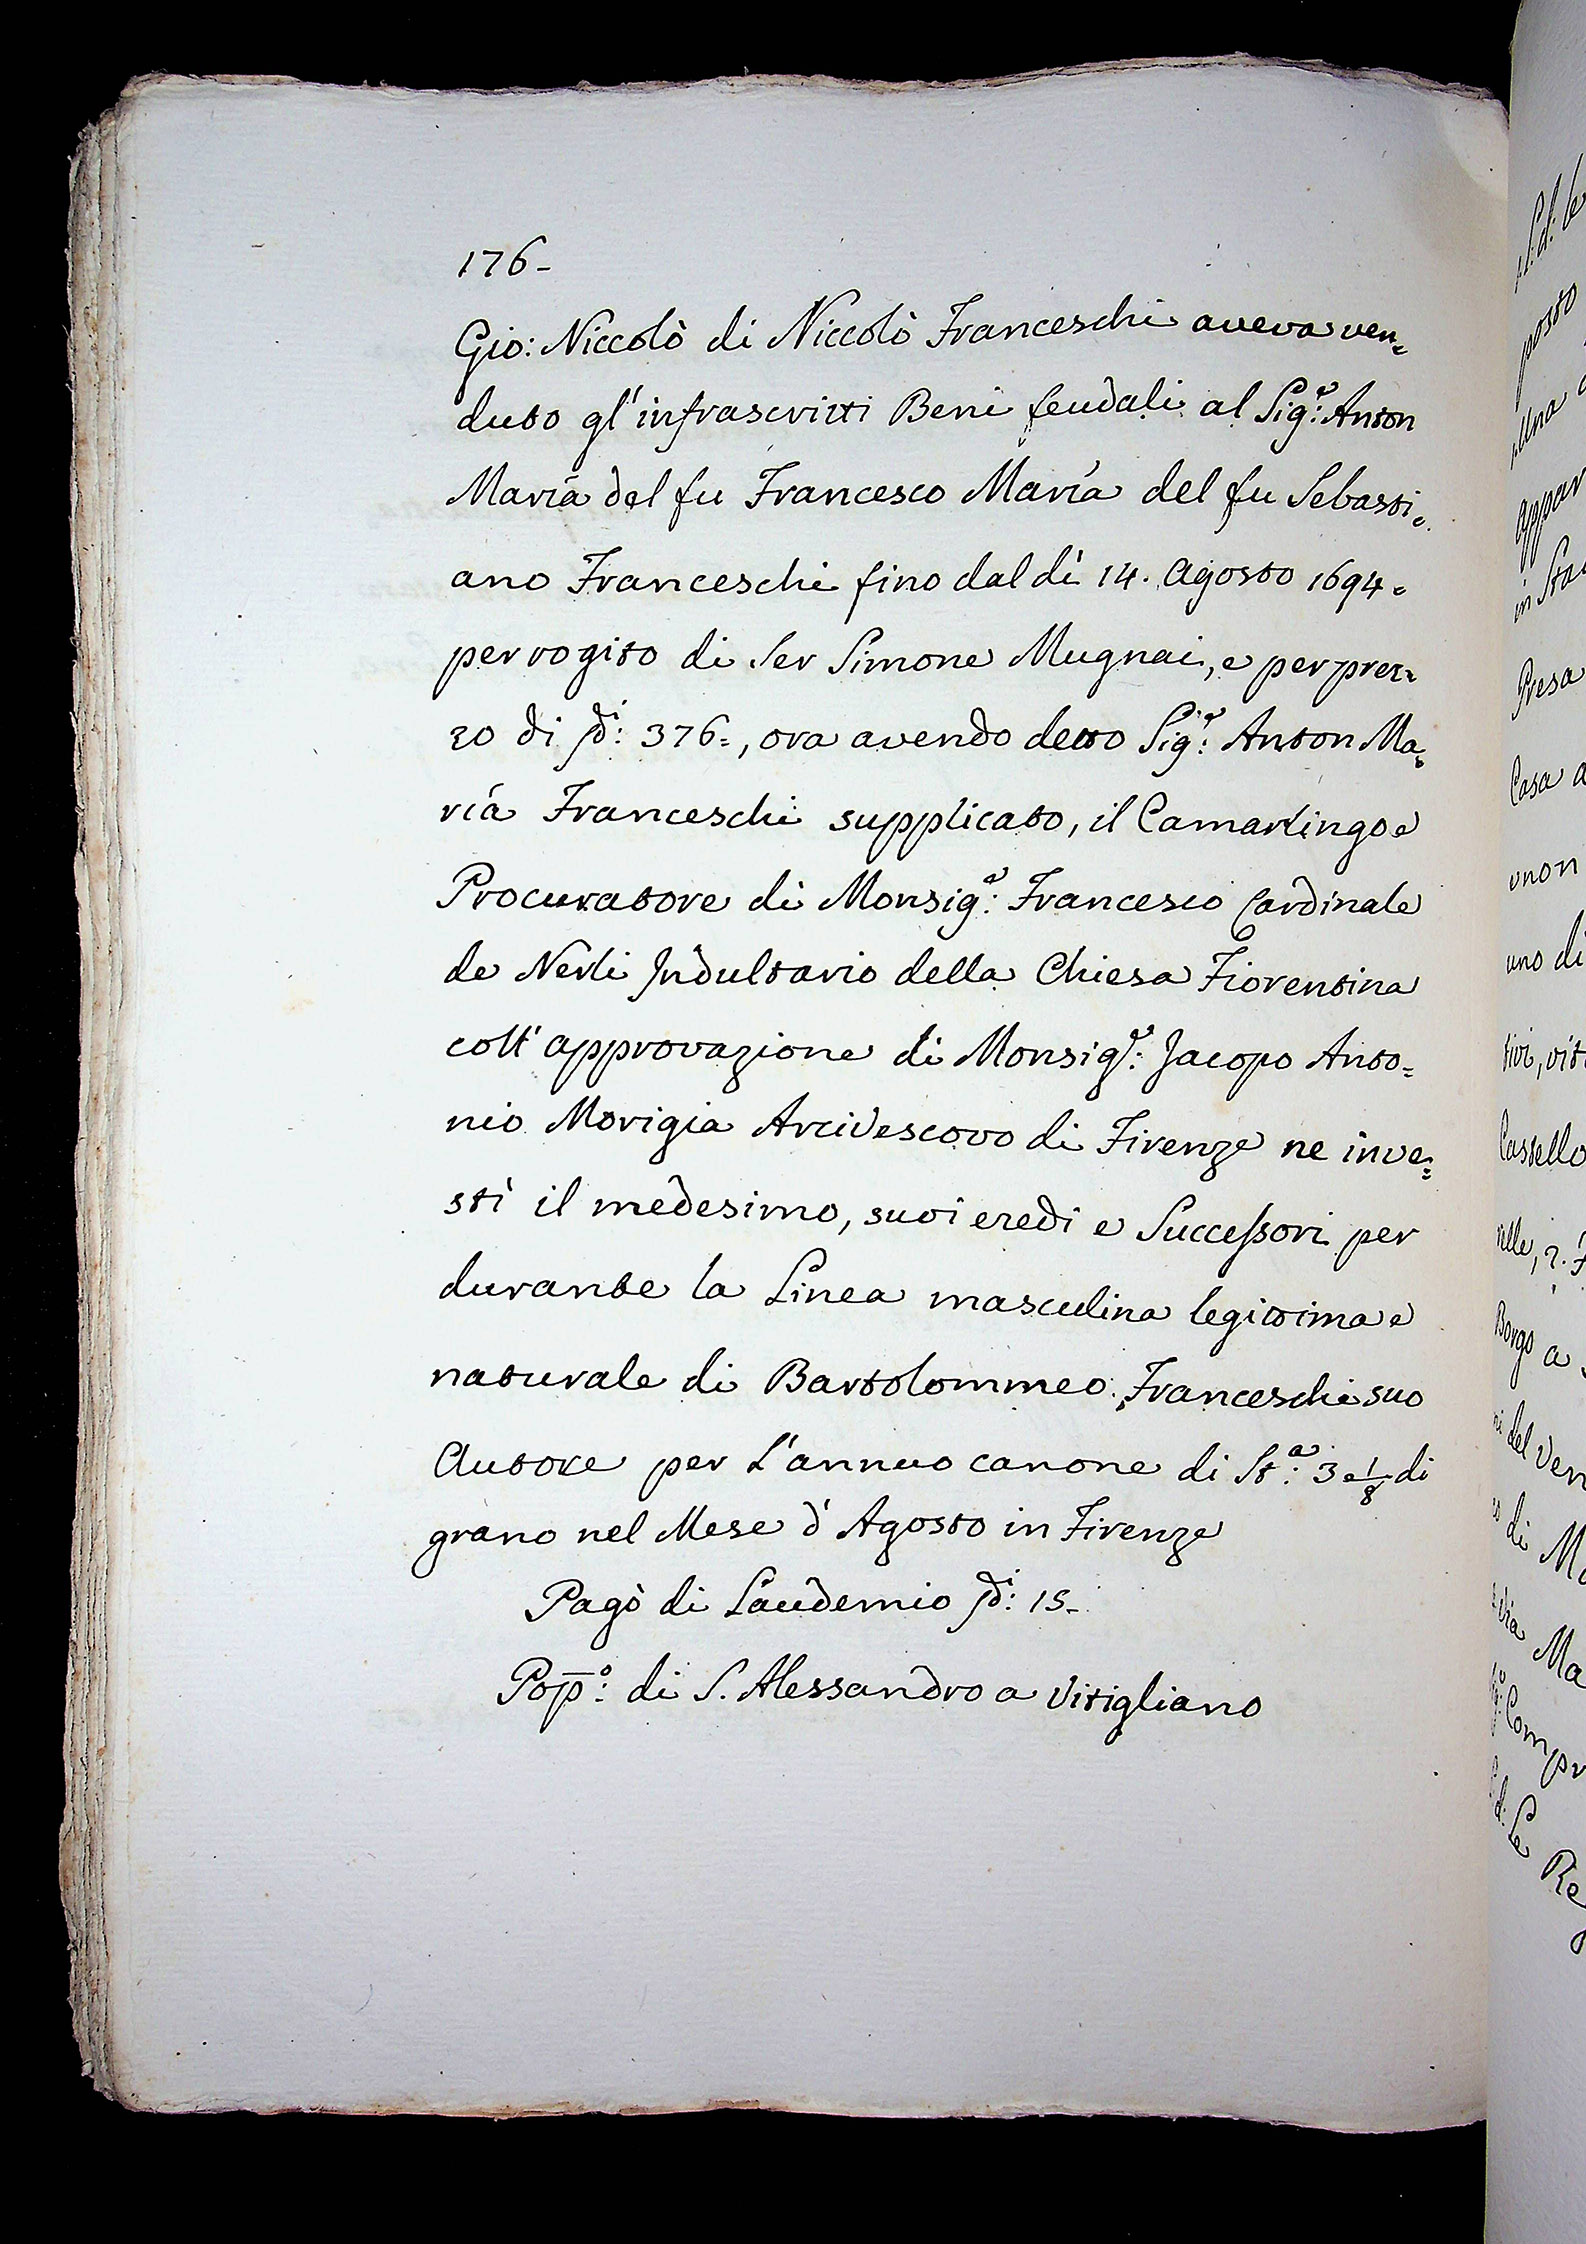 176-
Gio: Niccolò di Niccolò Franceschi aveva ven=
duto gl'infrascritti Beni feudali al Sig.r: Anton
Maria del fu Francesco Maria del fu Sebasti=
ano Franceschi fino dal dì 14. Agosto 1694.
per rogito di Ser Simone Mugnai, e per prez=
zo di di: 376=, ora avendo detto Sig.r: Anton Ma=
ria Franceschi supplicato, il Camarlingo e
Procuratore di Monsig.r: Francesco Cardinale
de Nerli Indultario della Chiesa Fiorentina
coll'approvazione di Monsig.r: Jacopo Anto=
nio Morigia Arcivescovo di Firenze ne inve=
stì il medesimo, suoi eredi e Successori per
durante la Linea masculina legittima e
naturale di Bartolommeo Franceschi suo
Autore per l'annuo canone di St.a: 3 e 1/8 di
grano nel Mese d'Agosto in Firenze
Pagò di Laudemio di: 15-
Pop.o: di S. Alessandro a Vitigliano
posto
Una
appar
in Sta
Presa
Casa a
uno di
Castello
Borgo a
del Ven
di Ma
via Ma
Compr
Le Re